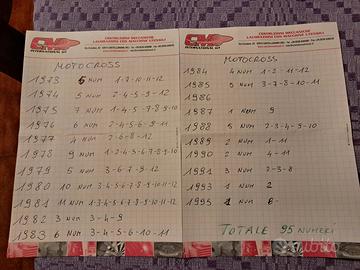 COSTRUZIONI MECCANICHE
LAVORAZIONI CON MACCHINE UTENSILI
INTERNATIONAL
MOTOCROSS
1973 5 NUM 1-7-10-11-12
1974 5 NUM 2-4-5-9-12
1975 7 NUM 1-4-5-7-8-9-10
1976 6 NUM 2-4-5-6-9-11
1977 4 NUM 2-6-8-12
1978 9 NUM 1-2-4-5-6-7-8-9-10
1979 5 NUM 3-6-7-9-12
1980 10 NUM 3-4-5-6-7-8-9-10-11-12
1981 11 NUM 1-3-4-5-6-7-8-9-10-11-12
1982 3 NUM 3-4-9
1983 6 NUM 3-4-5-6-10-11
COSTRUZIONI MECCANICHE
LAVORAZIONI CON MACCHINE UTENSILI
INTERNATIONAL
MOTOCROSS
1984 4 NUM 1-2-11-12
1985 5 NUM 3-7-8-10-11
1986
1987 1 NUM 9
1988 5 NUM 2-3-4-9-10
1989 2 NUM 1-11
1990 2 NUM 4-11
1991 3 NUM 2-3-8
1993 1 NUM 2
1995 1 NUM 8
TOTALE 95 NUMERI